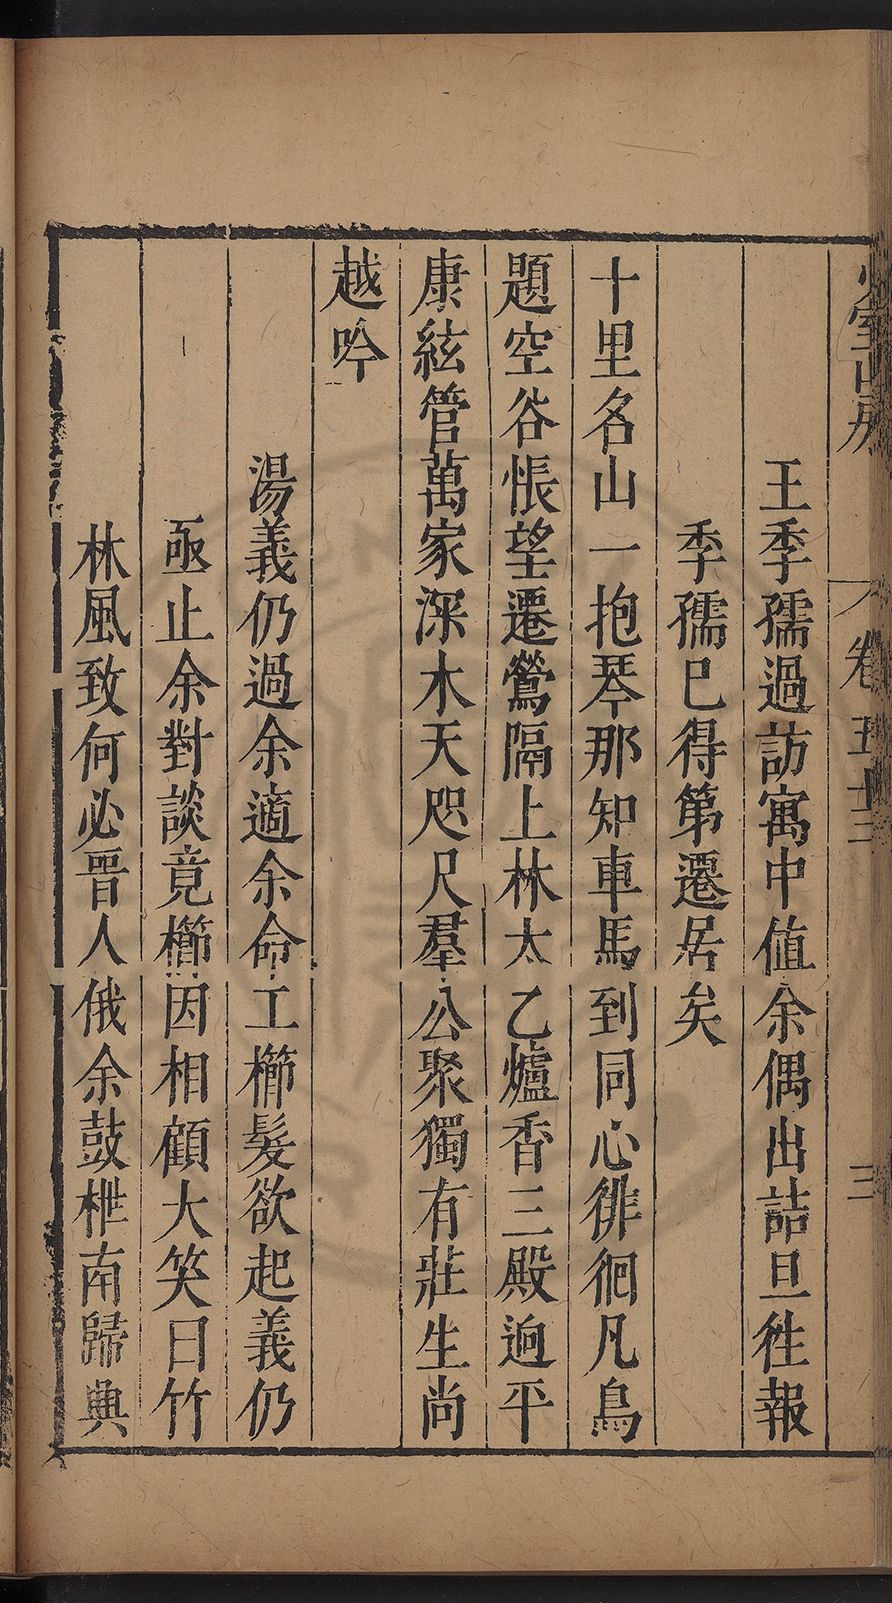 王季孺過訪寓中值余偶出詰旦徃報
季孺巳得第遷居矣
十里名山一抱琴那知車馬到同心徘徊凡鳥
題空谷悵望遷鶯隔上林太乙爐香三殿逈平
康絃管萬家深木天咫尺羣公聚獨有莊生尚
越吟
湯義仍過余適余命工櫛髮欲起義仍
亟止余對談竟櫛因相顧大笑曰竹
林風致何必晉人俄余鼓枻南歸典
室山房
卷五十三
三